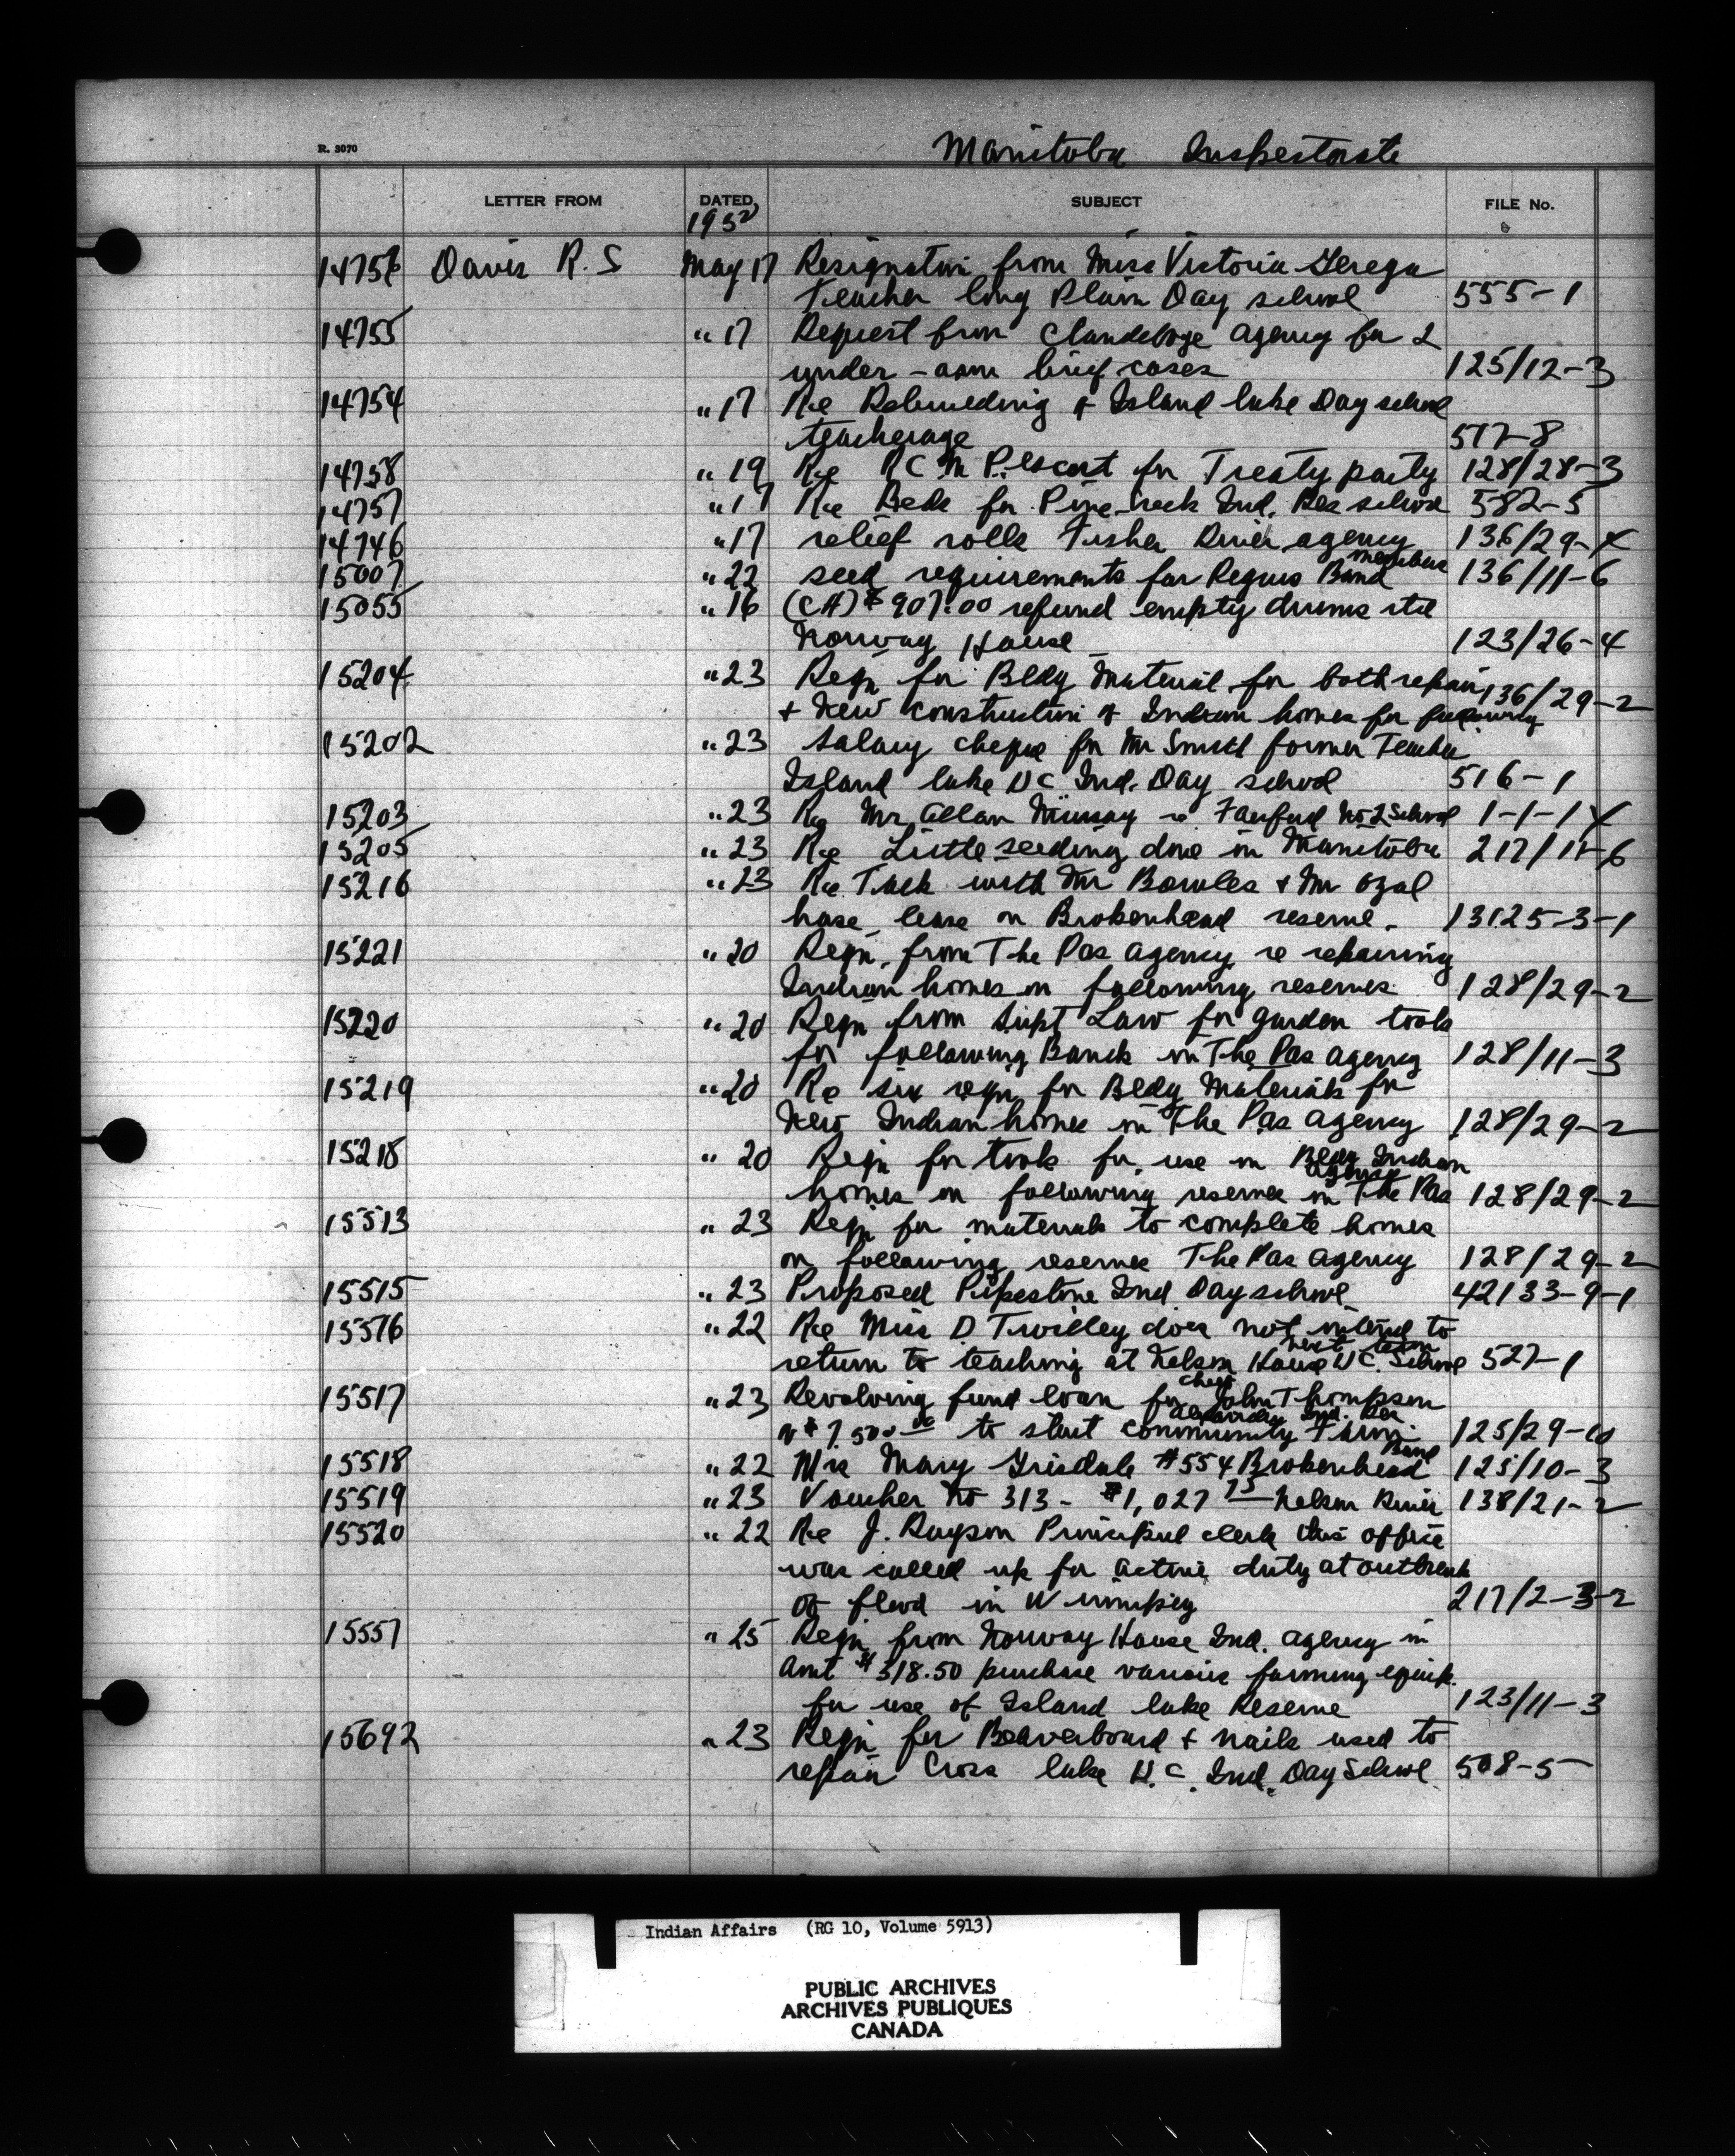 Manitoba Inspectorate
R. 3070
LETTER FROM DATED SUBJECT FILE No.
1950
14756 Davis R. S May 17 Resignation from Miss Victoria Gerega
Teacher long Plain Day school 555-1
14755 " 17 Request from Clandeboye agency for 2
under-arm brief cases 125/12-3
14754 " 17 Re Rebuilding of Island lake Day school
teacherage 517-8
14758 " 19 Re R C M P. escort for Treaty party 128/28-3
14757 " 17 Re Beds for Pine creek Ind. Res school 582-5
14746 " 17 relief rolls Fisher River agency 136/29-4
15007 " 22 seed requirements for Peguis Band members 136/11-6
15055 " 16 (CH) $907.00 refund empty drums etc
Norway House 123/26-4
15204 " 23 Reqn for Bldg Material for both repair 136/29-2
& New construction of Indian homes for following
15202 " 23 Salary cheque for Mr Smith former Teacher
Island lake U C Ind. Day school 516-1
15203 " 23 Re Mr Allan Murray re Fairford No 2 School 1-1-1
15205 " 23 Re Little seeding done in Manitoba 217/11-6
15216 " 23 Re Talk with Mr Bowles & Mr
lease on Brokenhead reserve. 13125-3-1
15221 " 20 Reqn. from The Pas agency re repairing
Indian homes on following reserves 128/29-2
15220 " 20 Reqn from Supt Law for garden tools
for following Bands in The Pas agency 128/11-3
15219 " 20 Re six reqn for Bldg Materials for
New Indian homes in The Pas agency 128/29-2
15218 " 20 Reqn for tools for use in Bldg Indian
homes on following reserves in The Pas agency 128/29-2
15513 " 23 Reqn for materials to complete homes
on following reserves The Pas agency 128/29-2
15515 " 23 Proposed Pipestone Ind Day school 42133-9-1
15516 " 22 Re Miss D Twilley does not intend to
return to teaching at Nelson House U C. School next term 527-1
15517 " 23 Revolving fund loan for chief John Thompson
Ind. Res
of $7,500.00 to start community Farm 125/29-10
15518 " 22 Mrs Mary Grisdale #554 Brokenhead Band 125/10-3
15519 " 23 Voucher No 313 - $1,027 75 Nelson River 138/21-2
15520 " 22 Re J. Rayson Principal clerk this office
was called up for active duty at outbreak
of flood in Winnipeg 217/2-3-2
15557 " 25 Reqn from Norway House Ind. agency in
amt $318.50 purchase various farming equip.
for use of Island lake Reserve 123/11-3
15692 " 23 Reqn for Beaverboard & nails used to
repair Cross lake U. C. Ind. Day School 508-5
Indian Affairs (RG 10, Volume 5913)
PUBLIC ARCHIVES
ARCHIVES PUBLIQUES
CANADA